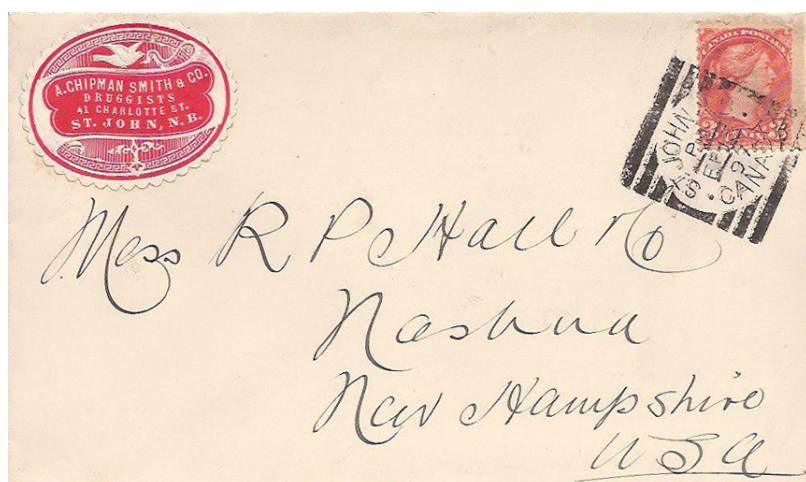 A. CHIPMAN SMITH & CO.
DRUGGISTS
41 CHARLOTTE ST.
ST. JOHN, N.B.
CANADA POSTAGE
ST. JOHN
CANADA
Mess R P Hall & Co
Nashua
New Hampshire
USA